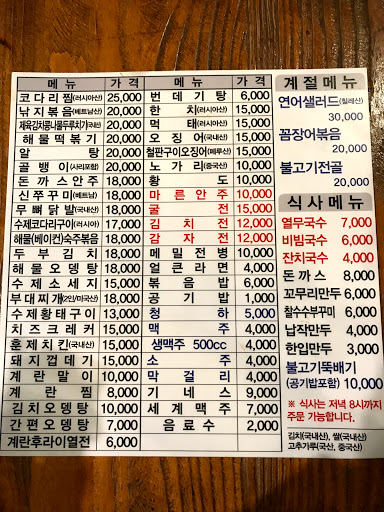 메 뉴 가 격
코다리찜(러시아산) 25,000
낚지볶음(베트남산) 20,000
제육김치콩나물두루치기(국내산) 20,000
해물떡볶기 20,000
알 탕 20,000
골 뱅 이(사리포함) 20,000
돈까스안주 18,000
신쭈꾸미(베트남) 18,000
무뼈닭발(국내산) 18,000
수제코다리구이(러시아) 17,000
해물(베이컨)숙주볶음 18,000
두부김치 18,000
해물오뎅탕 18,000
수제소세지 15,000
부대찌개(2인/미국산) 18,000
수제황태구이 13,000
치즈크레커 15,000
훈제치킨(국내산) 15,000
돼지껍데기 15,000
계란말이 10,000
계란찜 8,000
김치오뎅탕 10,000
간편오뎅탕 7,000
계란후라이열전 6,000
메 뉴 가 격
번데기탕 6,000
한 치(러시아산) 15,000
먹 태(러시아산) 15,000
오 징 어(국내산) 15,000
철판구이오징어(페루산) 15,000
노 가 리(중국산) 10,000
황 도 10,000
마른안주 10,000
굴 전 15,000
김 치 전 12,000
감 자 전 12,000
메밀전병 10,000
얼큰라면 4,000
볶 음 밥 6,000
공 기 밥 1,000
청 하 5,000
맥 주 4,000
생맥주 500cc 4,000
소 주 4,000
막 걸 리 4,000
기 네 스 9,000
세계맥주 7,000
음 료 수 2,000
계절메뉴
연어샐러드(칠레산)
30,000
꼼장어볶음
20,000
불고기전골
20,000
식사메뉴
열무국수 7,000
비빔국수 6,000
잔치국수 4,000
돈 까 스 8,000
꼬무리만두 6,000
찰수수부꾸미 6,000
납작만두 4,000
한입만두 3,000
불고기뚝배기
(공기밥포함) 10,000
※ 식사는 저녁 8시까지
주문 가능합니다.
김치(국내산), 쌀(국내산)
고추가루(국산, 중국산)